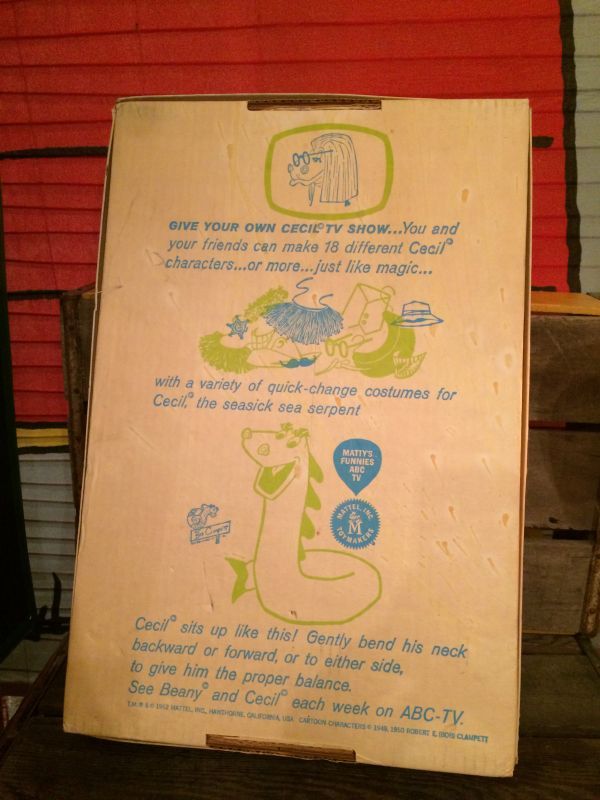 GIVE YOUR OWN CECIL© TV SHOW...You and
your friends can make 18 different Cecil©
characters...or more...just like magic...
with a variety of quick-change costumes for
Cecil,© the seasick sea serpent
MATTY'S
FUNNIES
ABC
TV
MATTEL, INC.
M
TOYMAKERS
Bob Clampett
Cecil© sits up like this! Gently bend his neck
backward or forward, or to either side,
to give him the proper balance.
See Beany© and Cecil© each week on ABC-TV.
T.M. ® & © 1962 MATTEL, INC., HAWTHORNE, CALIFORNIA, USA CARTOON CHARACTERS © 1949, 1950 ROBERT E. (BOB) CLAMPETT